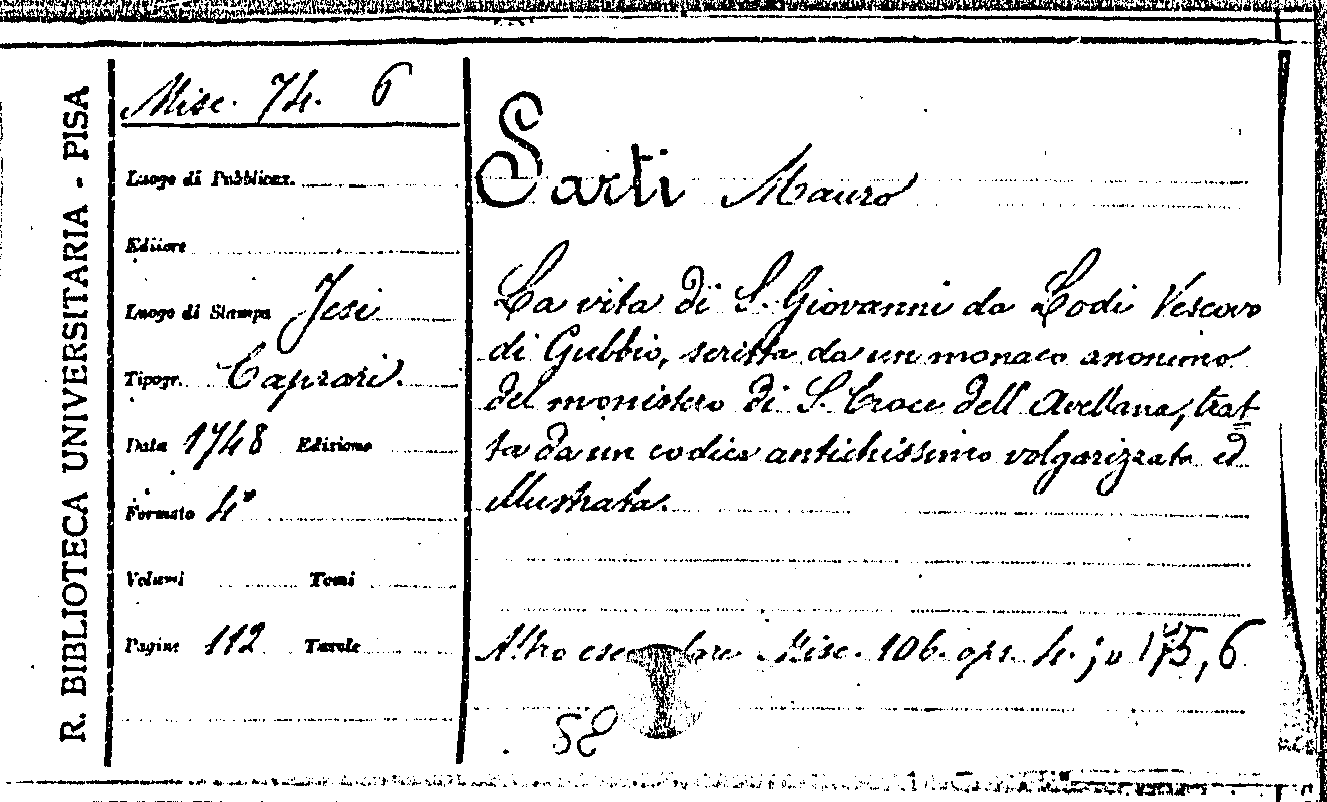 R. BIBLIOTECA UNIVERSITARIA - PISA
Misc. 74. 6
Luogo di Pubblicaz.
Editore
Luogo di Stampa Jesi
Tipogr. Caprari.
Data 1748 Edizione
Formato 4°
Volumi Tomi
Pagine 112 Tavole
Sarti Mauro
La vita di S. Giovanni da Lodi Vescovo
di Gubbio, scritta da un monaco anonimo
del monistero di S. Croce dell'Avellana, trat
ta da un codice antichissimo volgarizzata ed
illustrata.
Altro esemplare Misc. 106. ops. 4. ; 6